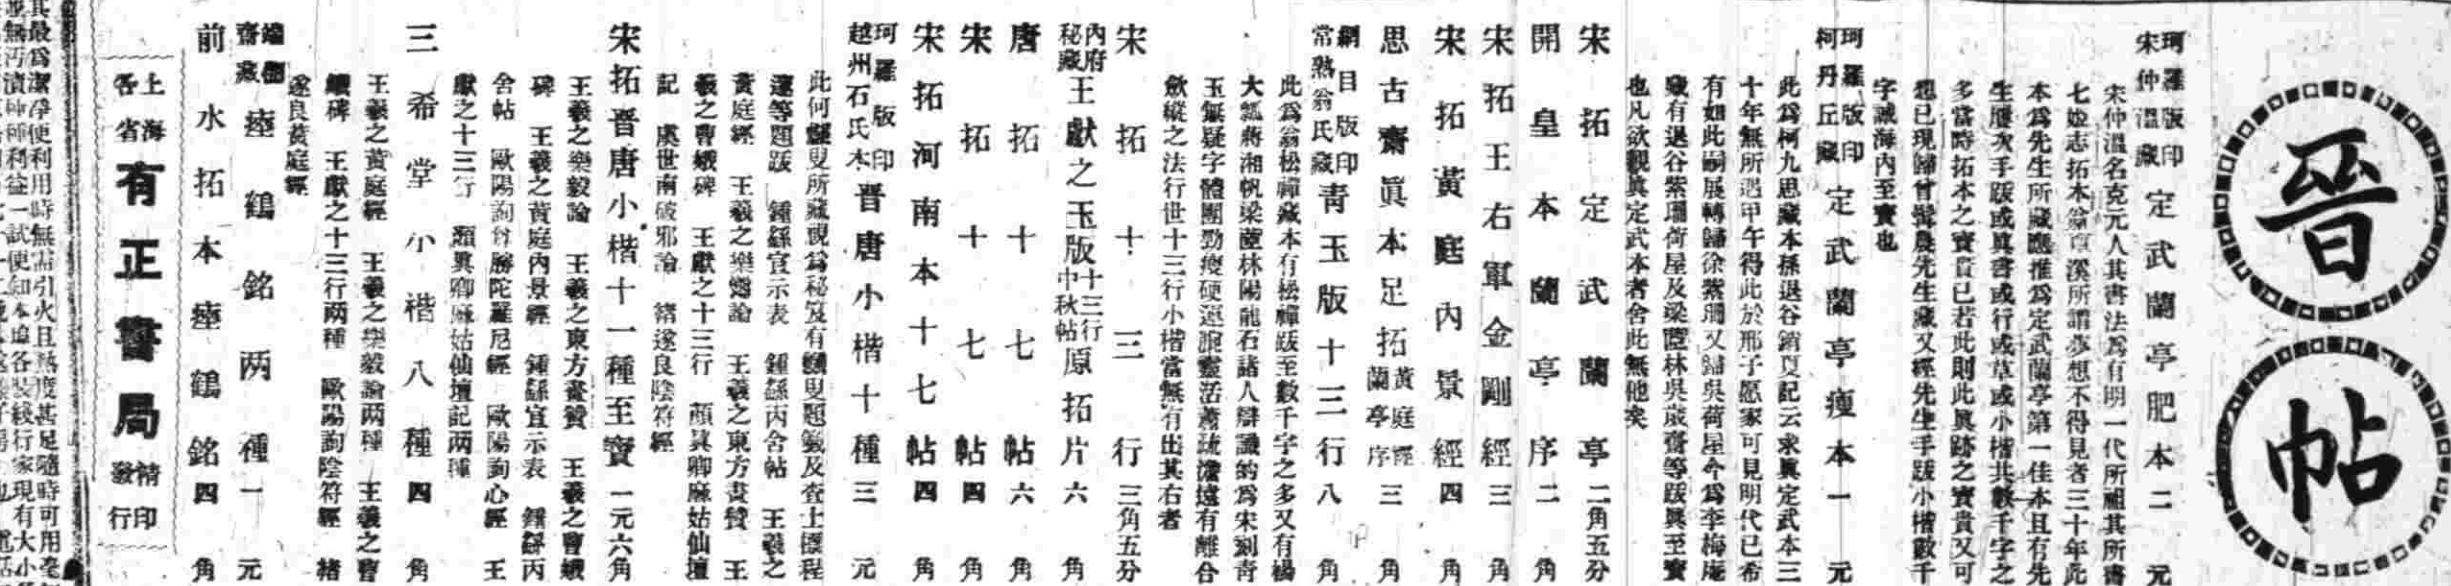 晉帖
珂羅版印
宋仲溫藏
定武蘭亭肥本 二元
宋仲溫名克元人其書法爲有明一代所祖其所書
七姬志拓本翁覃溪所謂夢想不得見者三十年此
本爲先生所藏應推爲定武蘭亭第一佳本且有先
生屢次手跋或眞書或行或草或小楷共數千字之
多當時拓本之寶貴已若此則此眞跡之寶貴又可
想已現歸曾髯農先生藏又經先生手跋小楷數千
字誠海內至寶也
珂羅版印
柯丹丘藏
定武蘭亭瘦本 一元
此爲柯九思藏本孫退谷銷夏記云求眞定武本三
十年無所遇甲午得此於邢子愿家可見明代已希
有如此嗣展轉歸徐紫珊又歸吳荷屋今爲李梅庵
藏有退谷紫珊荷屋及梁茝林吳荿齋等跋眞至寶
也凡欲觀眞定武本者舍此無他矣
宋拓定武蘭亭 二角五分
開皇本蘭亭序 二角
宋拓王右軍金剛經 三角
宋拓黃庭內景經 四角
思古齋眞本足拓黃庭經蘭亭序 三角
網目版印
常熟翁氏藏
靑玉版十三行 八角
此爲翁松禪藏本有松禪跋至數千字之多又有楊
大瓢蔣湘帆梁茝林陽龍石諸人辯識的爲宋刻靑
玉無疑字體團勁瘦硬運腕靈活蕭疏澹遠有離合
斂縱之法行世十三行小楷當無有出其右者
宋拓十三行 三角五分
內府
秘藏
王獻之玉版十三行中秋帖原拓片 六角
唐拓十七帖 六角
宋拓十七帖 四角
宋拓河南本十七帖 四角
珂羅版印
越州石氏本
晉唐小楷十種 三元
此何蝯叟所藏視爲秘笈有蝯叟題籤及查士標程
邃等題跋 鍾繇宣示表 鍾繇丙舍帖 王羲之
黃庭經 王羲之樂毅論 王羲之東方畫贊 王
羲之曹娥碑 王獻之十三行 顏眞卿麻姑仙壇
記 虞世南破邪論 褚遂良陰符經
宋拓晉唐小楷十一種至寶 一元六角
王羲之樂毅論 王羲之東方畫贊 王羲之曹娥
碑 王羲之黃庭內景經 鍾繇宣示表 鍾繇丙
舍帖 歐陽詢尊勝陀羅尼經 歐陽詢心經 王
獻之十三行 顏眞卿麻姑仙壇記两種
三希堂小楷八種 四角
王羲之黃庭經 王羲之樂毅論两種 王羲之曹
娥碑 王獻之十三行两種 歐陽詢陰符經 褚
遂良黃庭經
齋藏
瘞鶴銘两種 一元
前水拓本瘞鶴銘 四角
上海
各省
有正書局
精印
發行
其最爲潔淨便利用時無需引火且熱度甚足隨時可用毫
並無汚瀆種種利益一試便知本埠各裝綫行家現有大小